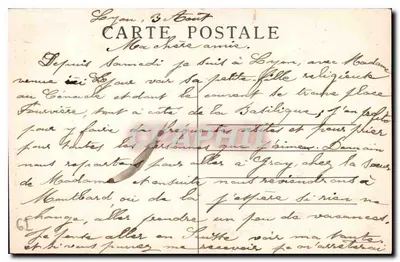 Lyon, 3 Août
CARTE POSTALE
Ma chère amie.
Depuis samedi je suis à Lyon, avec Madame
venue ici pour voir sa petite fille religieuse
au Cénacle et dont le couvent se trouve place
Fourvière, tout à côté de la Basilique, j'en profite
pour y faire de fréquentes visites et pour prier
pour toutes les personnes que j'aime. Demain
nous repartons pour aller à Gray, chez la sœur
de Madame et ensuite nous reviendrons à
Montbard, où de là j'espère si rien ne
change, aller prendre un peu de vacances.
Je pense aller en Suisse voir ma tante
et si vous pouvez me recevoir je m'arrêterai